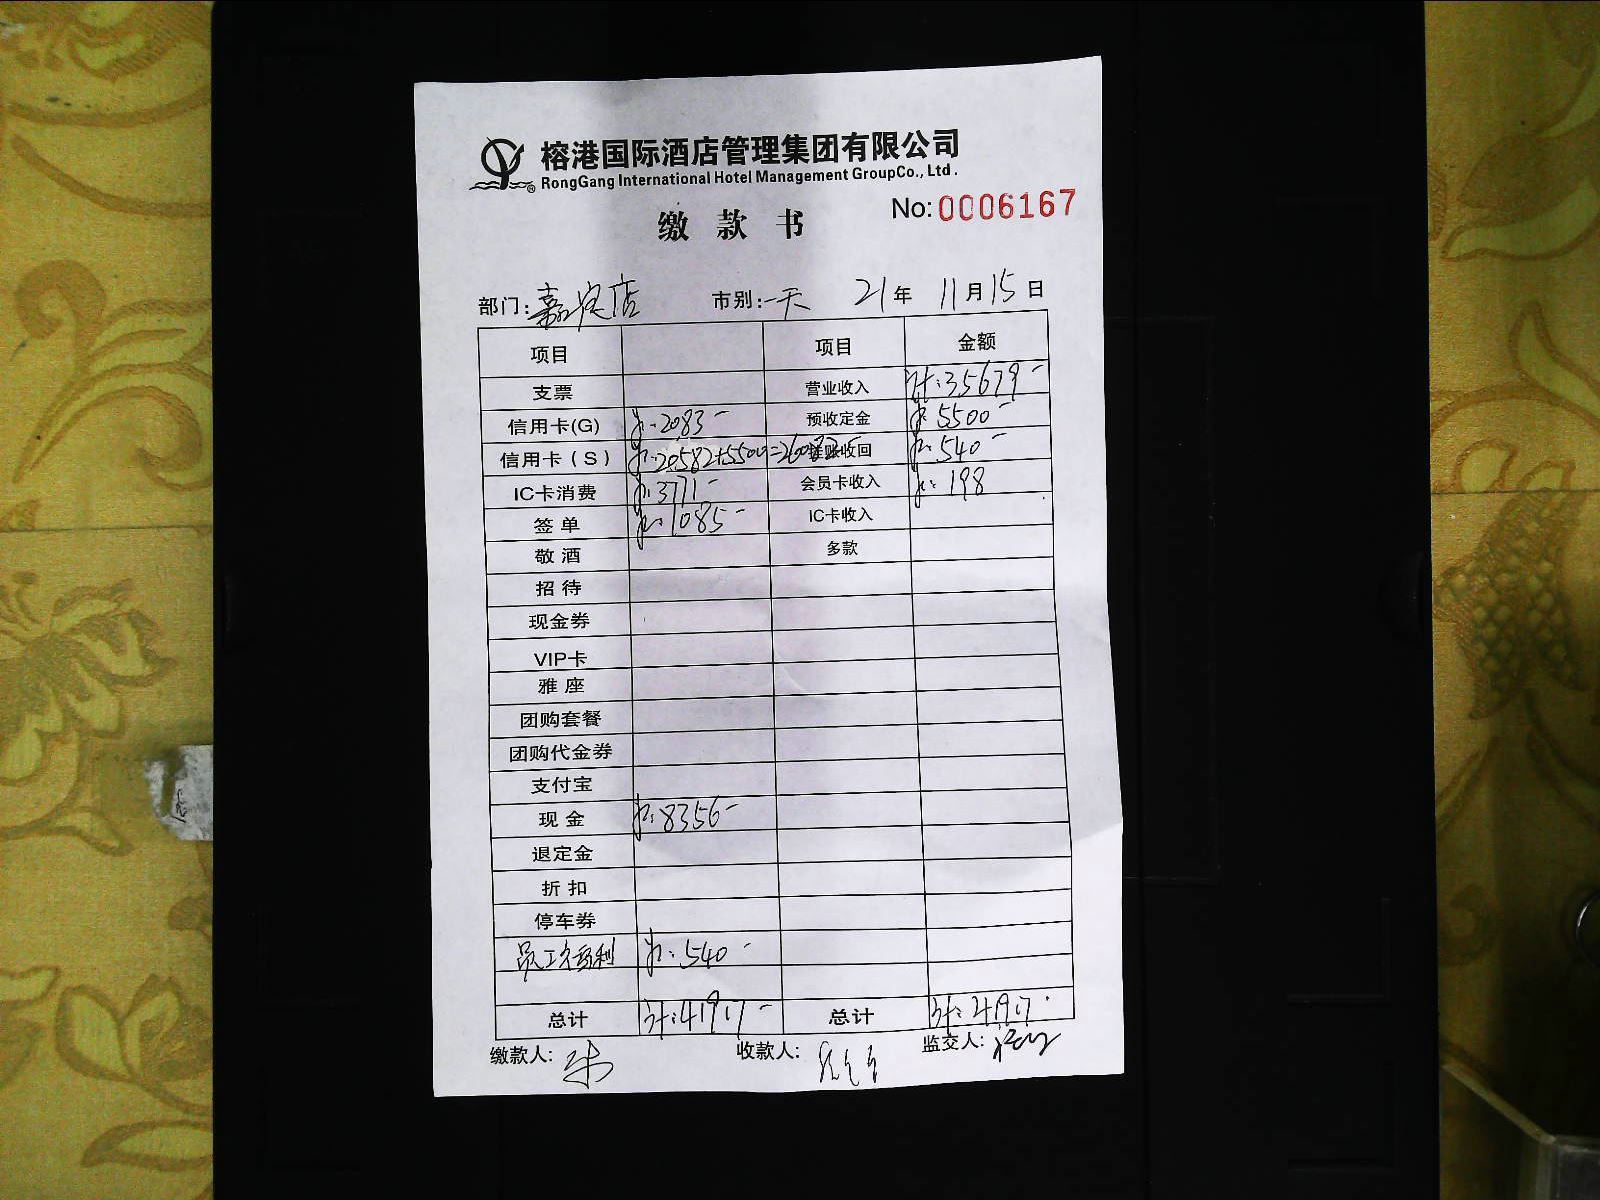 榕港国际酒店管理集团有限公司
RongGang International Hotel Management GroupCo., Ltd.
No: 0006167
缴 款 书
部门: 嘉定店 市别: 一天 21年 11月15日
项目 项目 金额
支票 营业收入 计:35679-
信用卡(G) 2083- 预收定金 5500-
信用卡(S) 20582+5500=26082 挂账收回 540-
IC卡消费 3771- 会员卡收入 198
签单 1085- IC卡收入
敬酒 多款
招待
现金券
VIP卡
雅座
团购套餐
团购代金券
支付宝
现金 8356-
退定金
折扣
停车券
员工福利 540-
总计 计:41917- 总计 计:41917
缴款人: 收款人: 监交人: